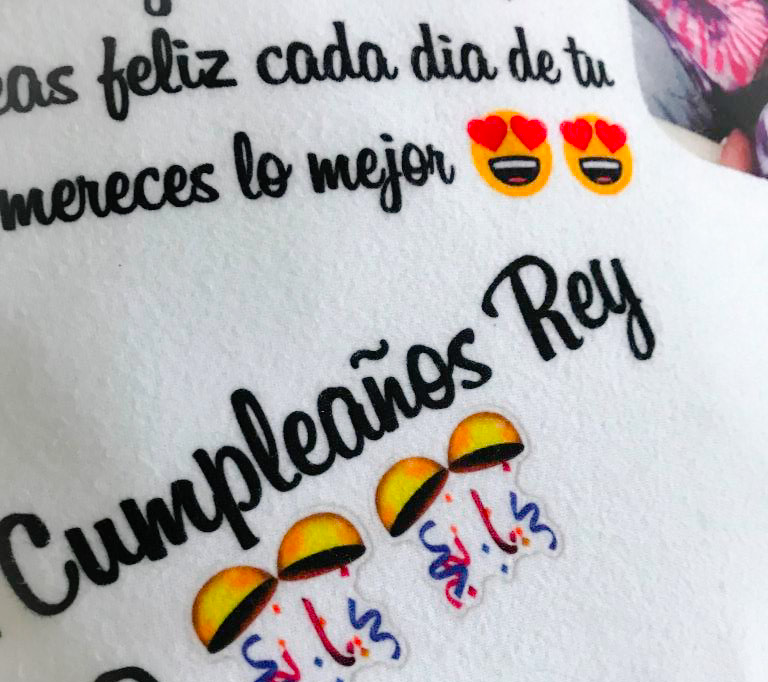 feliz cada dia de tu
mereces lo mejor 😍 😍
Cumpleaños Rey